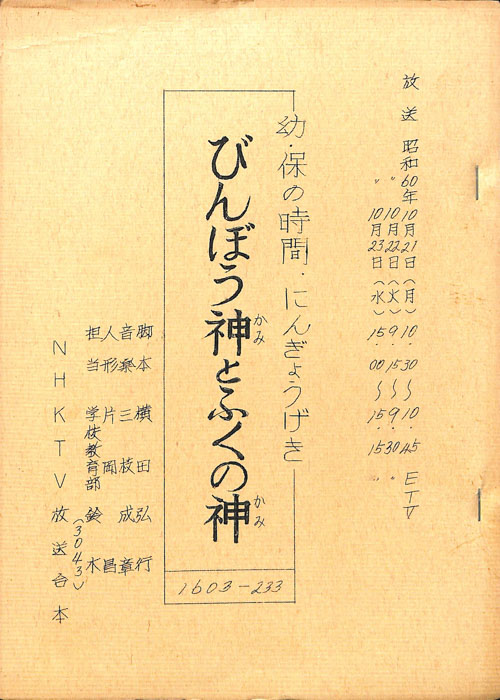 放送 昭和60年10月21日(月) 10.30〜10.45 ETV
〃 10月22日(火) 9.15〜9.30 〃
〃 10月23日(水) 15.00〜15.15 〃
幼・保の時間・にんぎょうげき
びんぼう神とふくの神
かみ
かみ
1603-233
脚本 横田弘行
音楽 三枝成章
人形 片岡昌
担当 学校教育部 鈴木
(3043)
NHKTV放送台本